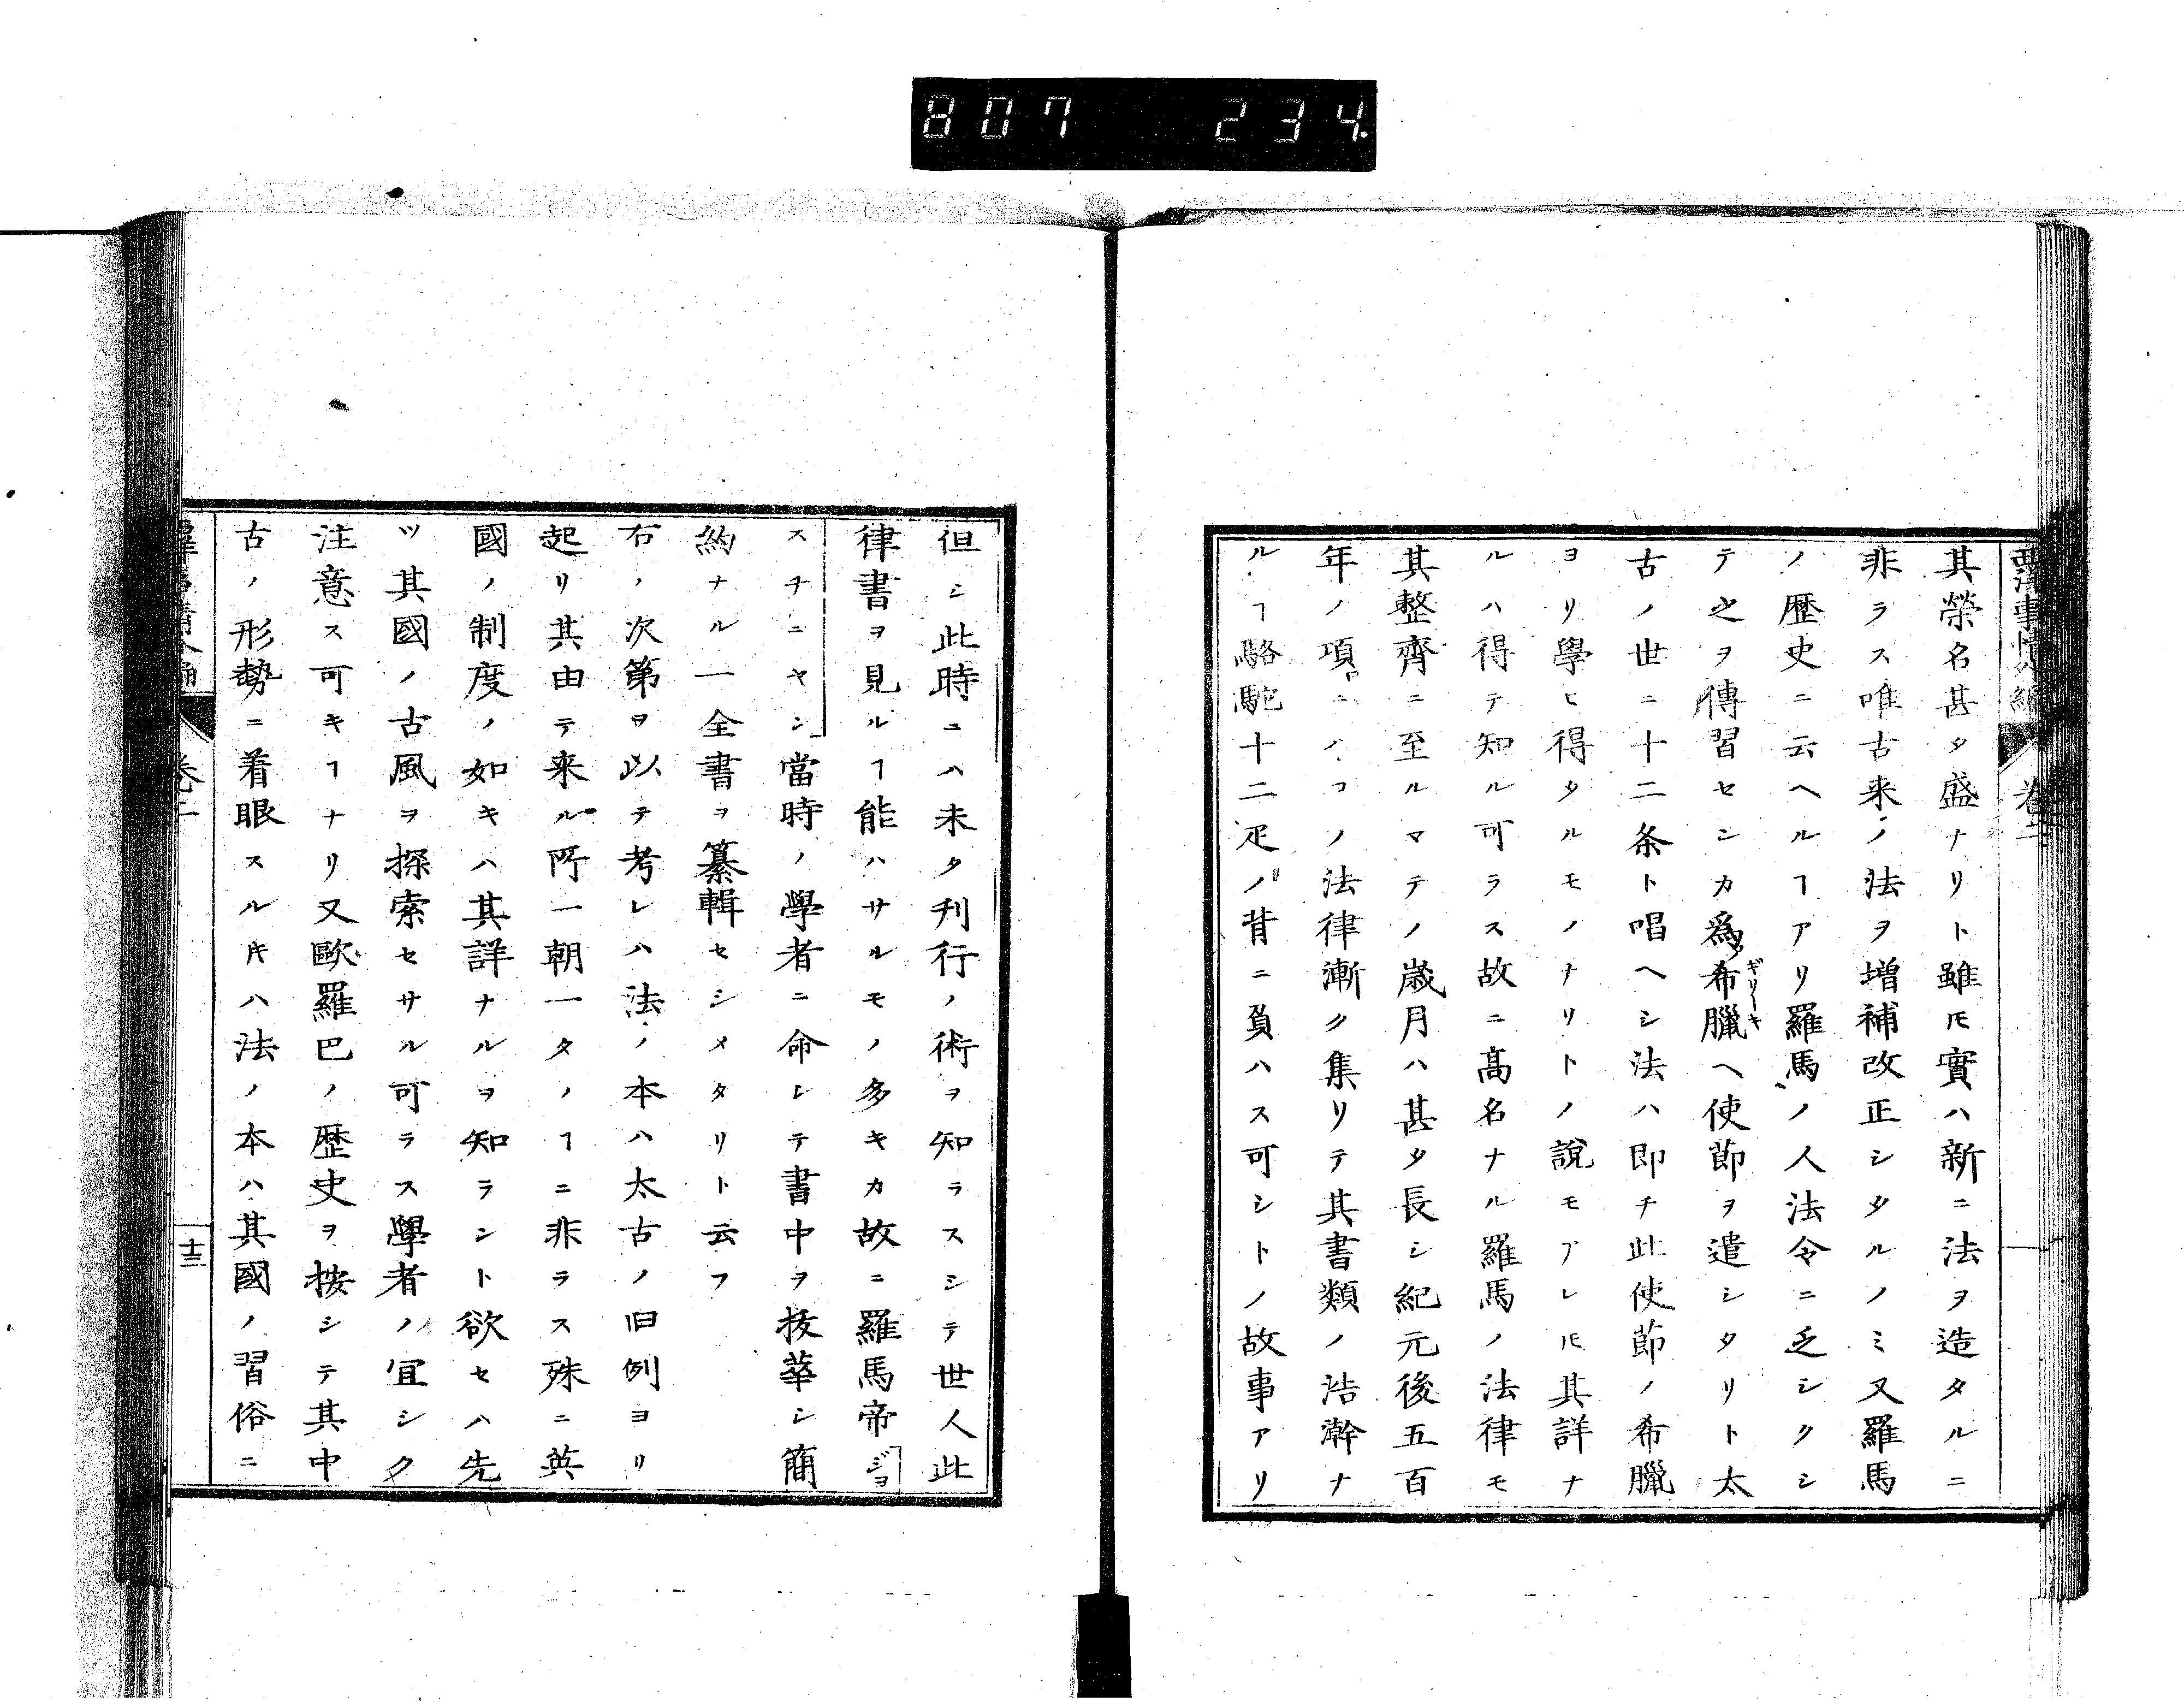 807 234
西洋事情外編 卷二
其榮名甚タ盛ナリト雖𪜈實ハ新ニ法ヲ造タルニ
非ラス唯古来ノ法ヲ増補改正シタルノミ又羅馬
ノ歴史ニ云ヘルヿアリ羅馬ノ人法令ニ乏シクシ
テ之ヲ傳習センカ爲メ希臘ギリーキヘ使節ヲ遣シタリト太
古ノ世ニ十二条ト唱ヘシ法ハ即チ此使節ノ希臘
ヨリ學ヒ得タルモノナリトノ說モアレ𪜈其詳ナ
ルハ得テ知ル可ラス故ニ髙名ナル羅馬ノ法律モ
其整齊ニ至ルマテノ歳月ハ甚タ長シ紀元後五百
年ノ項ロニハコノ法律漸ク集リテ其書類ノ浩澣ナ
ルヿ駱駝十二疋ノ背ニ負ハス可シトノ故事アリ
但シ此時ニハ未タ刋行ノ術ヲ知ラスシテ世人此
律書ヲ見ルヿ能ハサルモノ多キカ故ニ羅馬帝ジヨ
スチニヤン當時ノ學者ニ命レテ書中ヲ抜萃シ簡
約ナル一全書ヲ纂輯セシメタリト云フ
右ノ次第ヲ以テ考レハ法ノ本ハ太古ノ旧例ヨリ
起リ其由テ来ル所一朝一タノヿニ非ラス殊ニ英
國ノ制度ノ如キハ其詳ナルヲ知ラント欲セハ先
ツ其國ノ古風ヲ探索セサル可ラス學者ノ宜シク
注意ス可キヿナリ又歐羅巴ノ歴史ヲ按シテ其中
古ノ形勢ニ着眼スル𪜈ハ法ノ本ハ其國ノ習俗ニ
卷二
十三